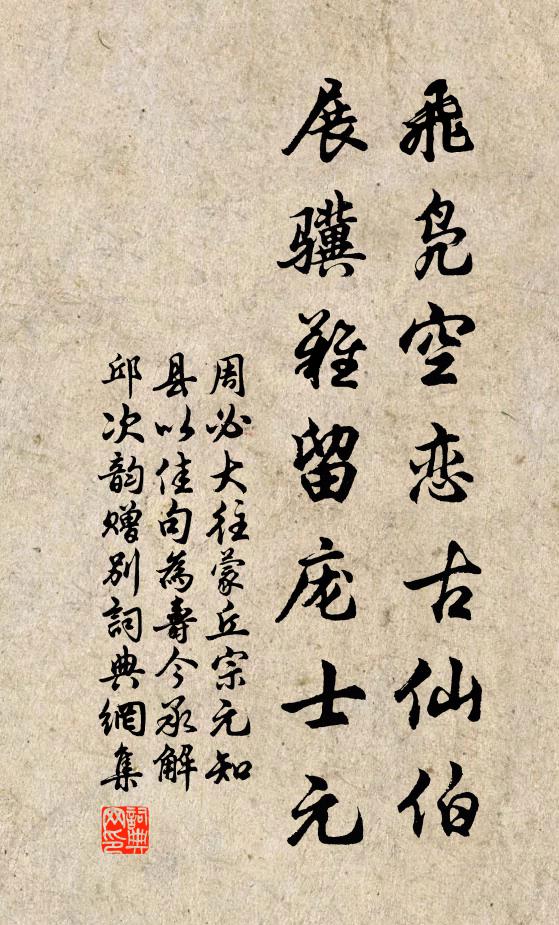 飛凫空恋古仙伯
展骥難留庞士元
周必大往蒙丘宗元知
县以佳句為壽今承解
邱次韵赠别詞典網集
詞典
网印